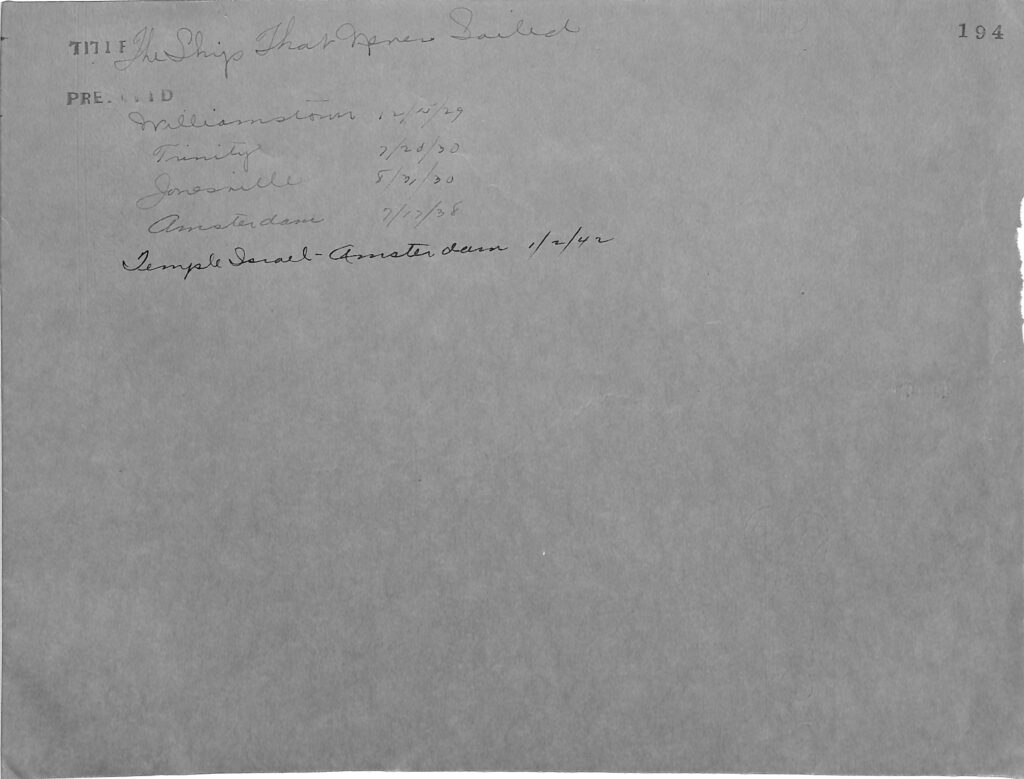 194
TITLE The Ship That Never Sailed
PRE
Williamstown 12/15/29
Trinity 7/20/30
Jonesville 8/31/30
Amsterdam 7/17/38
Temple Israel - Amsterdam 1/2/42